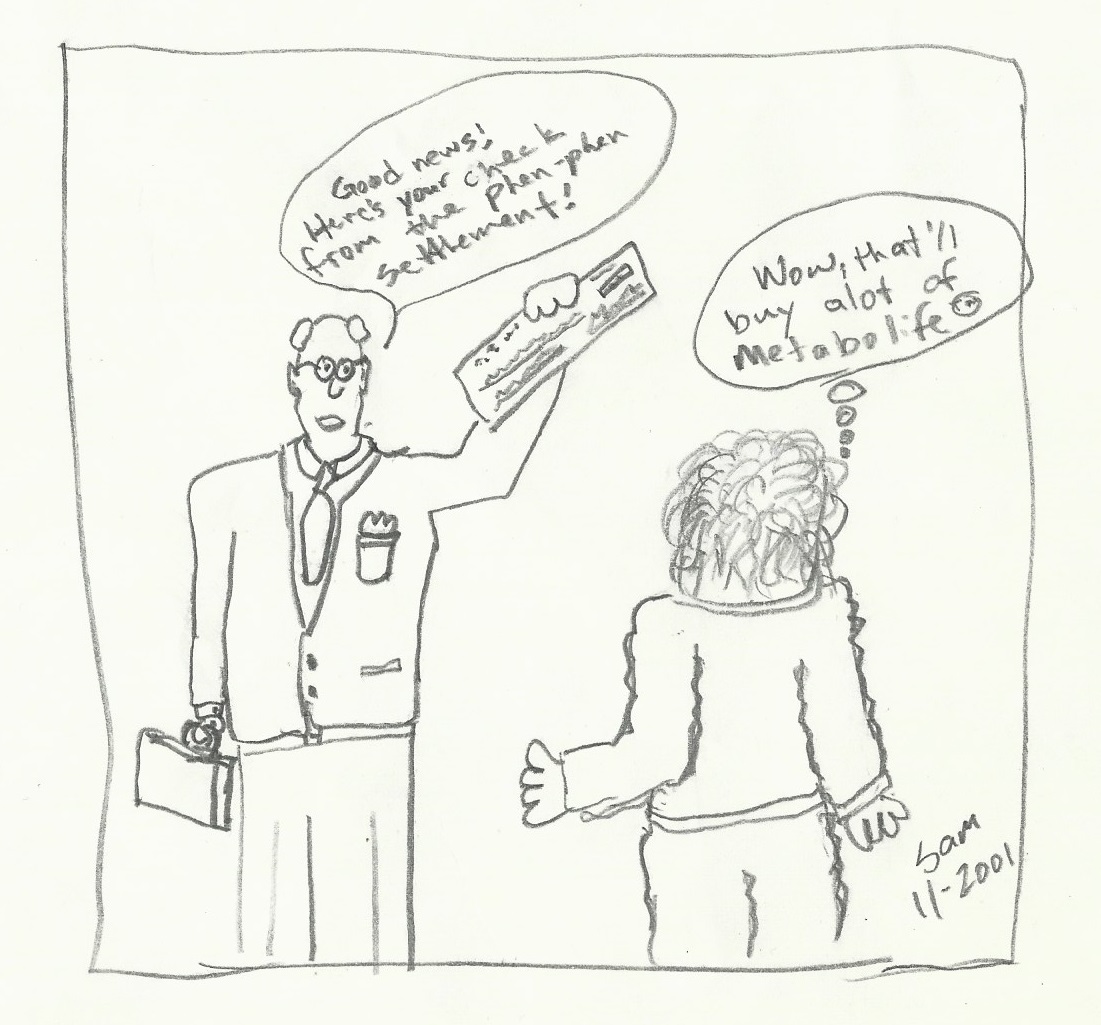 Good news!
Here's your check
from the phen-phen
settlement!
Wow, that'll
buy alot of
Metabolife
Sam
11-2001